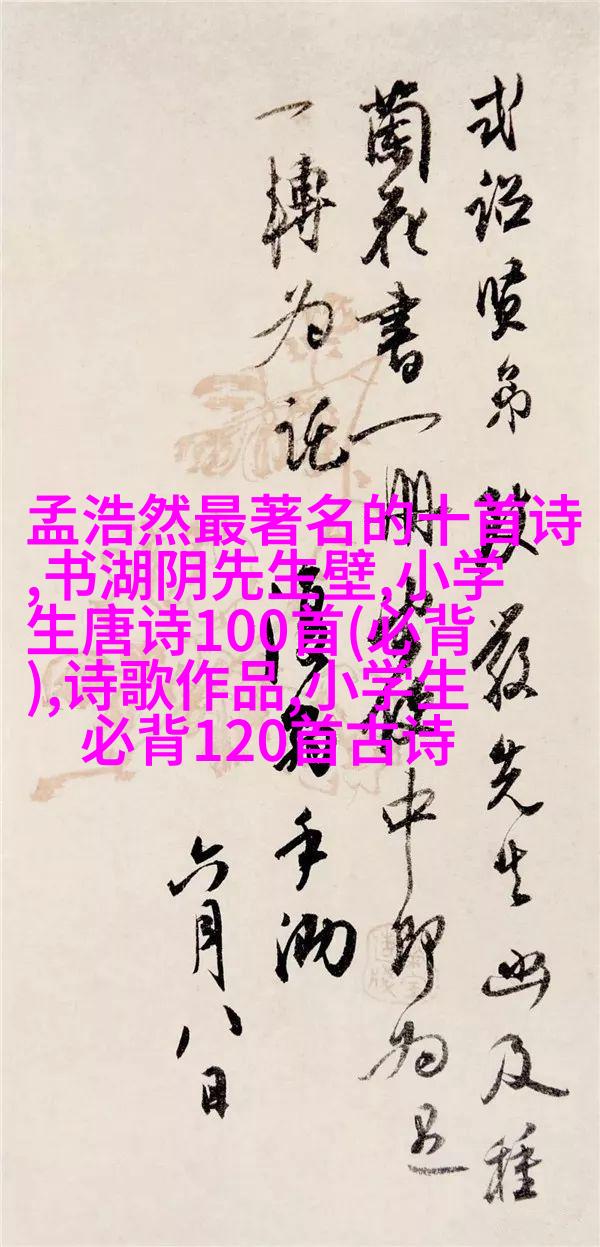 式诏贤弟 黄严先生函及种
兰花书一册 中即为足
一转为託
手泐
六月八日
孟浩然最著名的十首诗
,书湖阴先生壁,小学
生唐诗100首(必背
),诗歌作品,小学生
必背120首古诗